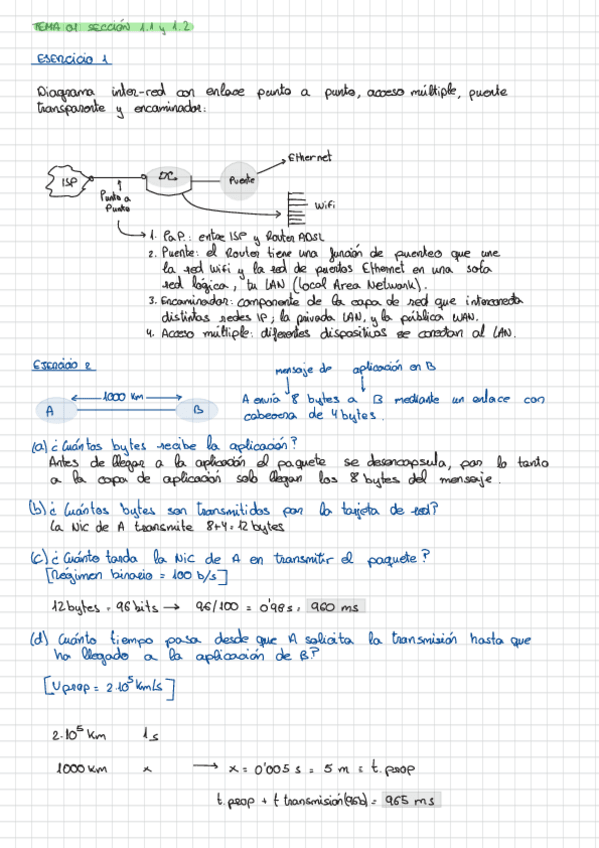 TEMA 01 SECCIÓN 1.1 y 1.2
EJERCICIO 1
Diagrama inter-red con enlace punto a punto, acceso múltiple, puente
transparente y encaminador:
Ethernet
ISP
DC
Puente
Punto a
Punto
WiFi
1. PaP.: entre ISP y Router ADSL
2. Puente: el Router tiene una función de puenteo que une
la red wifi y la red de puertos Ethernet en una sola
red lógica, tu LAN (Local Area Network).
3. Encaminador: componente de la capa de red que interconecta
distintas redes IP; la privada LAN, y la pública WAN.
4. Acceso múltiple: diferentes dispositivos se conectan al LAN.
EJERCICIO 2
mensaje de aplicación en B
1000 Km
A
B
A envía 8 bytes a B mediante un enlace con
cabecera de 4 bytes.
(a) ¿Cuántos bytes recibe la aplicación?
Antes de llegar a la aplicación el paquete se desencapsula, por lo tanto
a la capa de aplicación solo llegan los 8 bytes del mensaje.
(b) ¿Cuántos bytes son transmitidos por la tarjeta de red?
La NIC de A transmite 8+4=12 bytes
(c) ¿Cuánto tarda la NIC de A en transmitir el paquete?
[Régimen binario = 100 b/s]
12 bytes = 96 bits → 96/100 = 0'98 s = 960 ms
(d) Cuánto tiempo pasa desde que A solicita la transmisión hasta que
ha llegado a la aplicación de B?
[Vprop = 2·10⁵ Km/s]
2·10⁵ Km 1s
1000 Km x → x = 0'005 s = 5 m = t.prop
t.prop + t transmisión(96b) = 965 ms